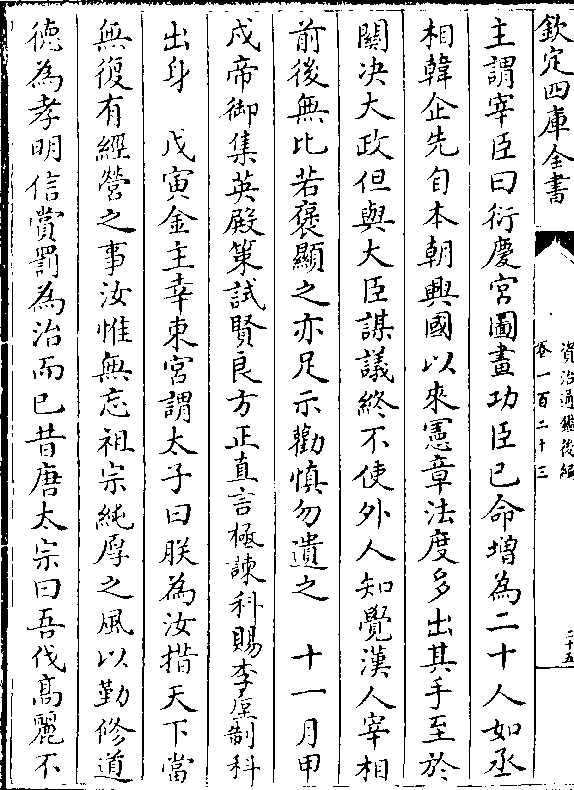 欽定四庫全書
資治通鑑後編
卷一百二十三
二十五
主謂宰臣曰衍慶宮圖畫功臣已命增為二十人如丞
相韓企先自本朝興國以來憲章法度多出其手至於
關決大政但與大臣謀議終不使外人知覺漢人宰相
前後無比若褒顯之亦足示勸慎勿遺之　十一月甲
戍帝御集英殿策試賢良方正直言極諫科賜李垕制科
出身　戊寅金主幸東宮謂太子曰朕為汝措天下當
無復有經營之事汝惟無忘祖宗純厚之風以勤修道
德為孝明信賞罰為治而已昔唐太宗曰吾伐高麗不